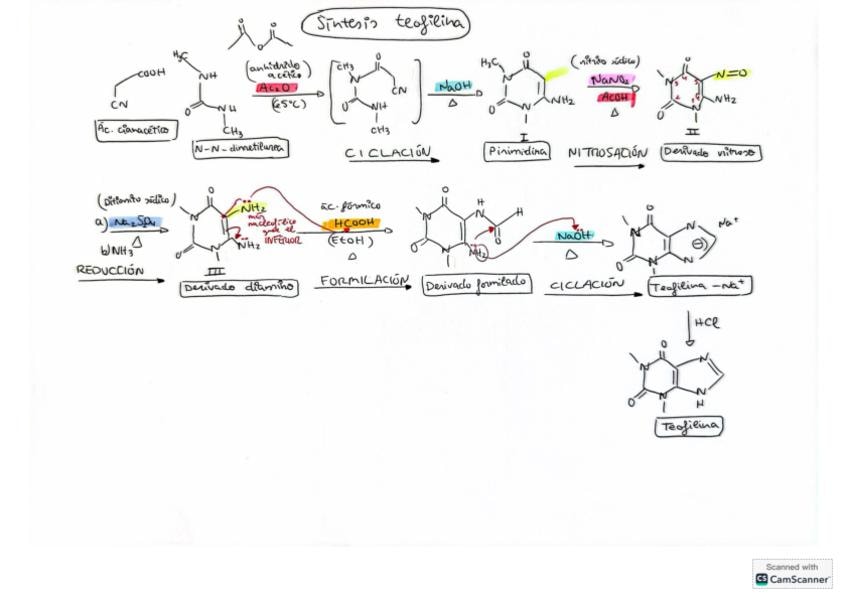 Síntesis teofilina
COOH
CN
Ác. cianacético
H3C
NH
O
NH
CH3
N-N-dimetilurea
(anhídrido
acético)
Ac2O
(65°C)
CH3
N
O
CN
NH
CH3
CICLACIÓN
NaOH
Δ
H3C
NH2
I
Pirimidina
(nitrito sódico)
NaNO2
AcOH
Δ
NITROSACIÓN
N=O
NH2
II
Derivado nitroso
(Ditionito sódico)
a) Na2S2O4
Δ
b) NH3
REDUCCIÓN
NH2
más
nucleofílico
que el
INFERIOR
NH2
III
Derivado diamino
ác. fórmico
HCOOH
(EtOH)
Δ
FORMILACIÓN
H
N
H
O
NH2
Derivado formilado
NaOH
Δ
CICLACIÓN
Na+
Teofilina -Na+
HCl
N
H
Teofilina
Scanned with
CS CamScanner